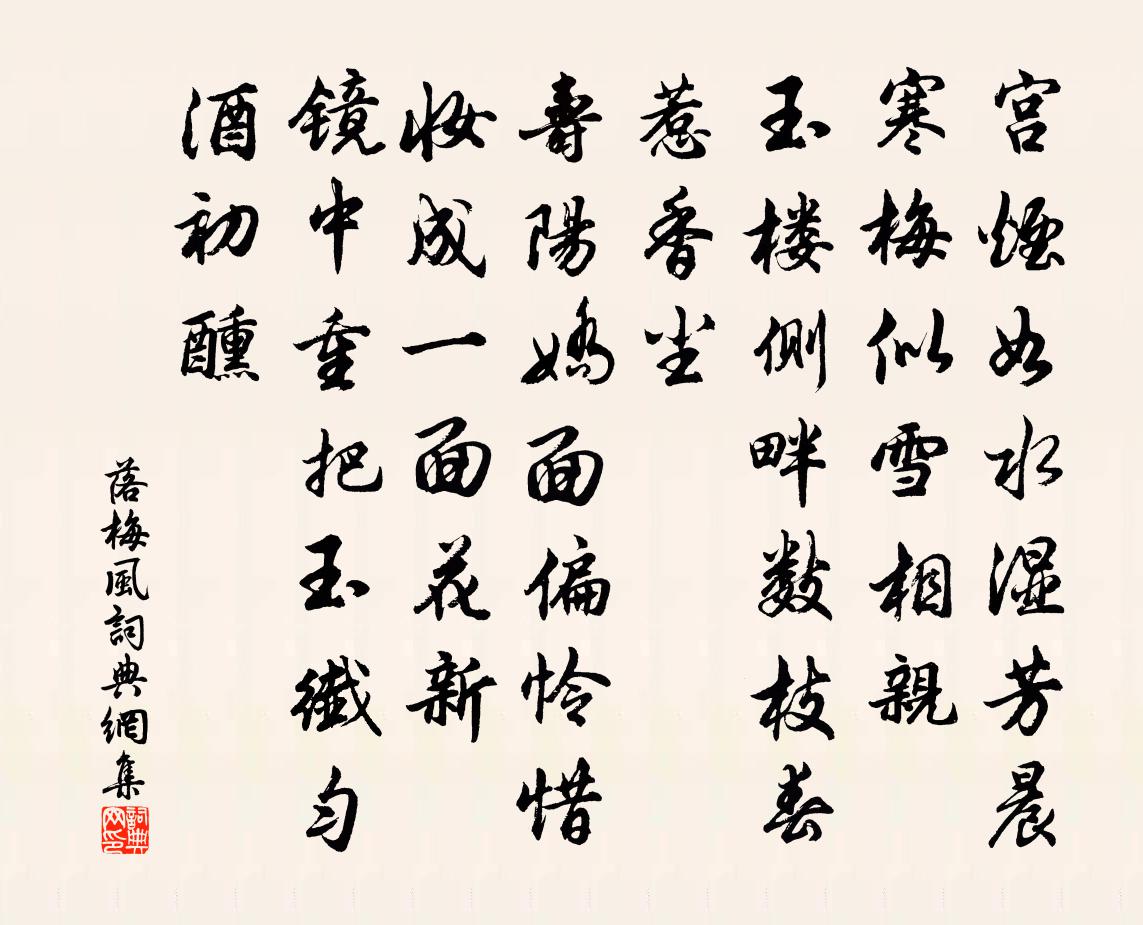 宫煙如水湿芳晨
寒梅似雪相親
玉楼側畔数枝春
惹香尘
壽陽嬌面偏怜惜
妝成一面花新
镜中重把玉纖匀
酒初醺
落梅風詞典網集
詞典网印